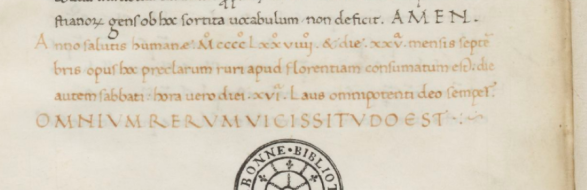 stianoꝝ gens ob hoc sortita uocabulum non deficit. AMEN.
Anno salutis humane. Mcccc Lxxviiij. & die. xxv. mensis septē
bris opus hoc preclarum ruri apud florentiam consumatum est: die
autem sabbati. hora vero diei. xvi. Laus omnipotenti deo semper.
OMNIVM RERVM VICISSITVDO EST
BONNE · BIBLIOT